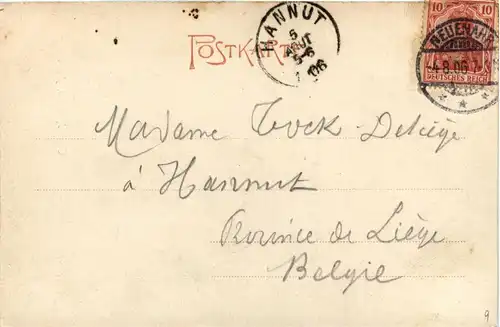 10 10
DEUTSCHES REICH
NEUENAHR
4.8.06
HANNUT
5
AOUT
5-6
06
POSTKARTE
Madame Tock-Deliége
à Hannut
Province de Liége
Belgie
9